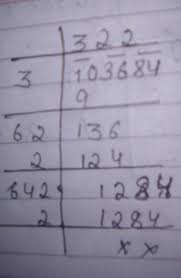 3 2 2
3 103684
9
62 136
2 124
642 1284
2 1284
x x